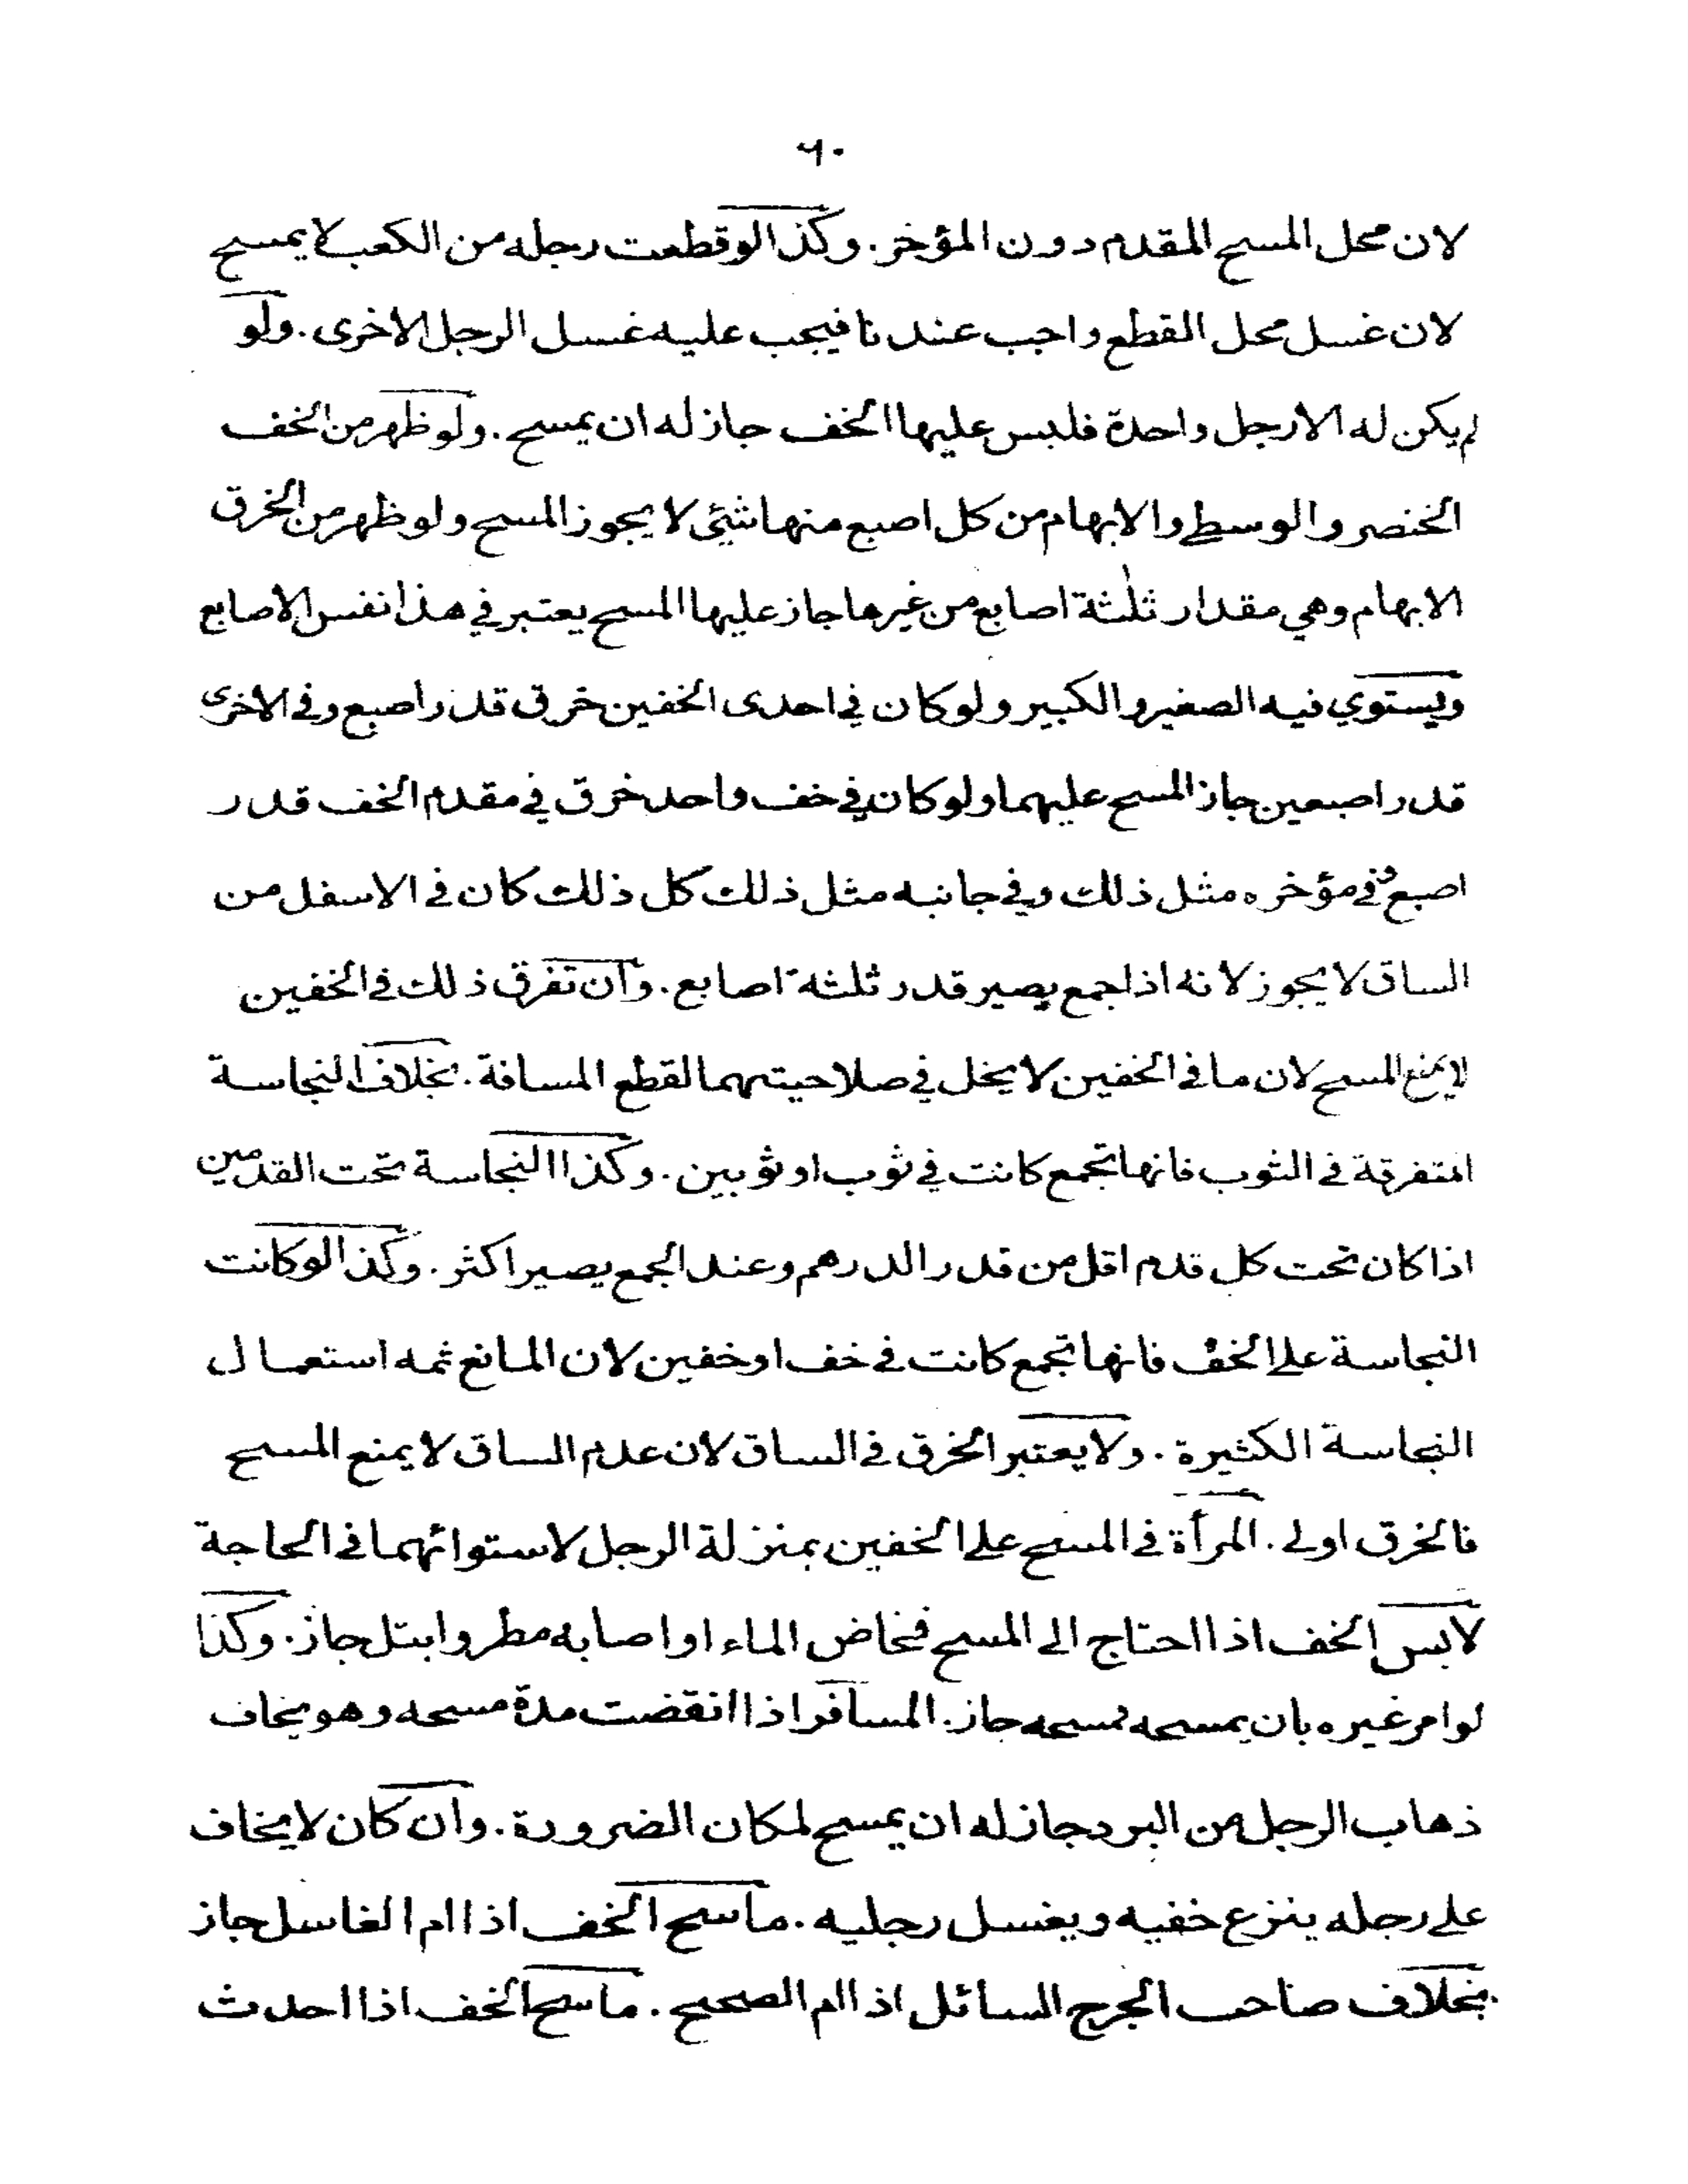 ٦٠
لان محل المسح المقدم دون المؤخر. وكذا لو قطعت رجله من الكعب لا يمسح
لان غسل محل القطع واجب عندنا فيجب عليه غسل الرجل الاخرى. ولو
لم يكن له الا رجل واحدة فلبس عليها الخف جاز له ان يمسح. ولو ظهر من الخف
الخنصر والوسطے والابهام من كل اصبع منها شيئ لا يجوز المسح ولو ظهر من الخرق
الابهام وهي مقدار ثلٰثة اصابع من غيرها جاز عليها المسح يعتبر في هذا نفس الاصابع
ويستوي فيه الصغير والكبير ولو كان في احدى الخفين خرق قدر اصبع وفي الاخرى
قدر اصبعين جاز المسح عليهما ولو كان في خف واحد خرق في مقدم الخف قدر
اصبع وفي مؤخره مثل ذلك وفي جانبه مثل ذلك كل ذلك كان في الاسفل من
الساق لا يجوز لانه اذا جمع يصير قدر ثلثة اصابع. وان تفرق ذلك في الخفين
لا يمنع المسح لان ما في الخفين لا يخل في صلاحيتهما لقطع المسافة. بخلاف النجاسة
المتفرقة في الثوب فانها تجمع كانت في ثوب او ثوبين. وكذا النجاسة تحت القدمين
اذا كان تحت كل قدم اقل من قدر الدرهم وعند الجمع يصير اكثر. وكذا لو كانت
النجاسة على الخف فانها تجمع كانت في خف او خفين لان المانع ثمه استعمال
النجاسة الكثيرة. ولا يعتبر الخرق في الساق لان عدم الساق لا يمنع المسح
فالخرق اولى. المرأة في المسح على الخفين بمنزلة الرجل لاستوائهما في الحاجة
لابس الخف اذا احتاج الى المسح فخاض الماء او اصابه مطر وابتل جاز. وكذا
لو امر غيره بان يمسحه فمسحه جاز. المسافر اذا انقضت مدة مسحه وهو يخاف
ذهاب الرجل من البرد جاز له ان يمسح لمكان الضرورة. وان كان لا يخاف
على رجله ينزع خفيه ويغسل رجليه. ماسح الخف اذا ام الغاسل جاز
بخلاف صاحب الجرح السائل اذا ام الصحيح. ماسح الخف اذا احدث